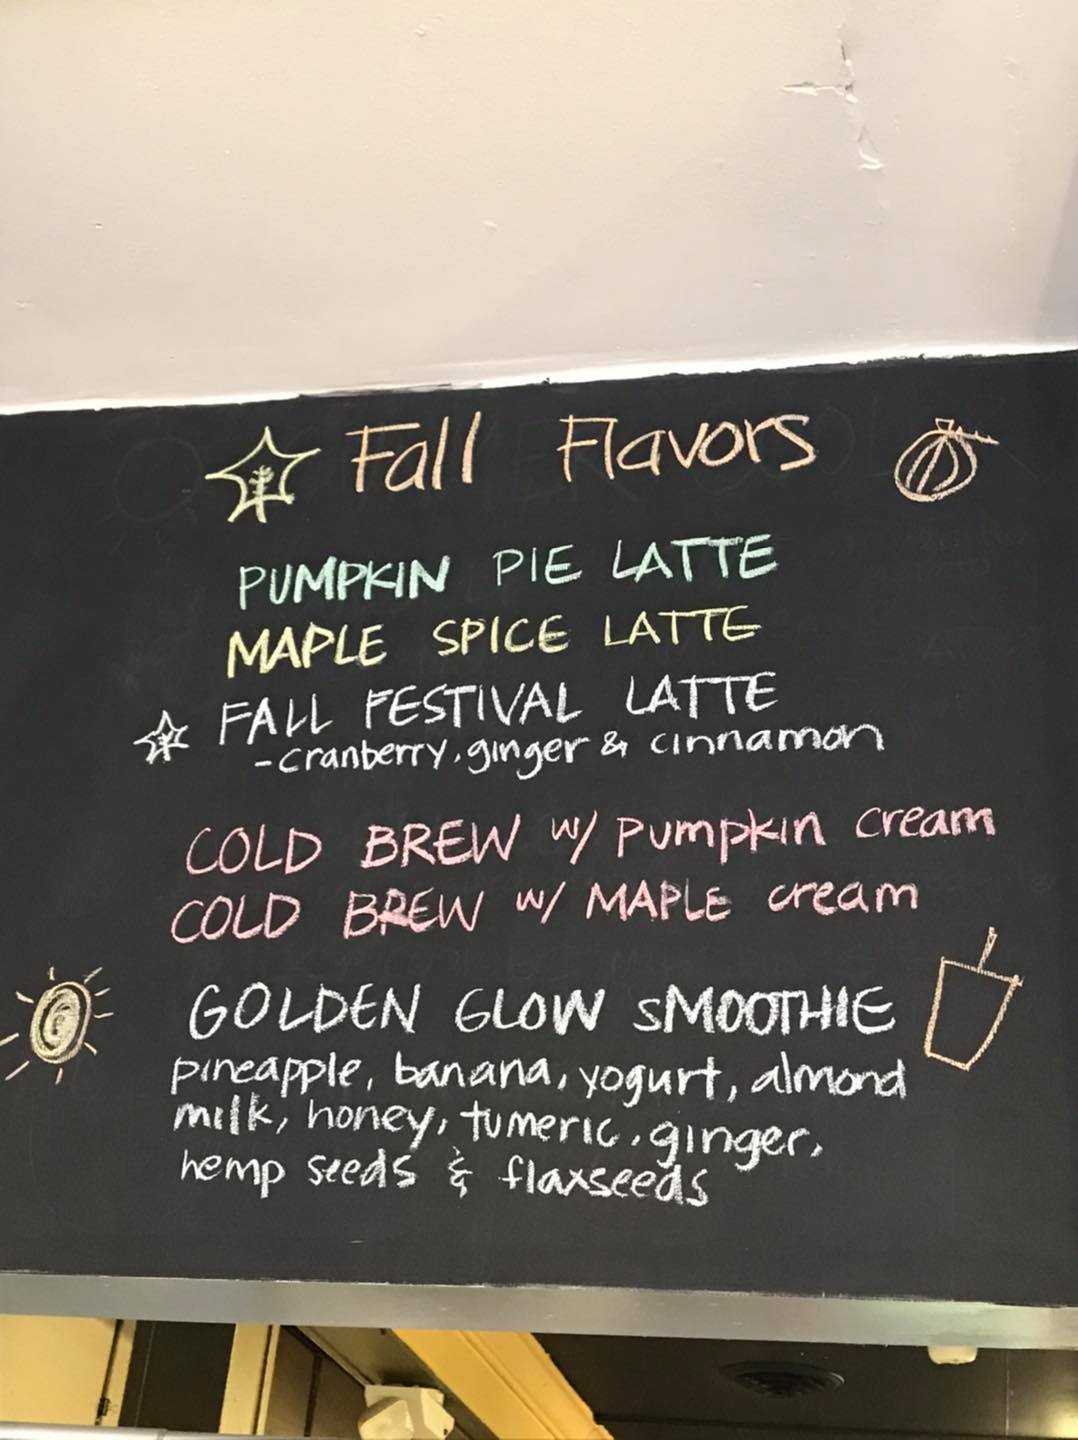 Fall Flavors
PUMPKIN PIE LATTE
MAPLE SPICE LATTE
FALL FESTIVAL LATTE
-cranberry, ginger & cinnamon
COLD BREW w/ pumpkin cream
COLD BREW w/ MAPLE cream
GOLDEN GLOW SMOOTHIE
pineapple, banana, yogurt, almond
milk, honey, tumeric, ginger,
hemp seeds & flaxseeds